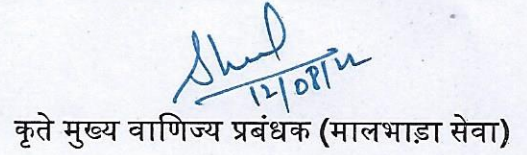 12/08/22
कृते मुख्य वाणिज्य प्रबंधक (मालभाड़ा सेवा)